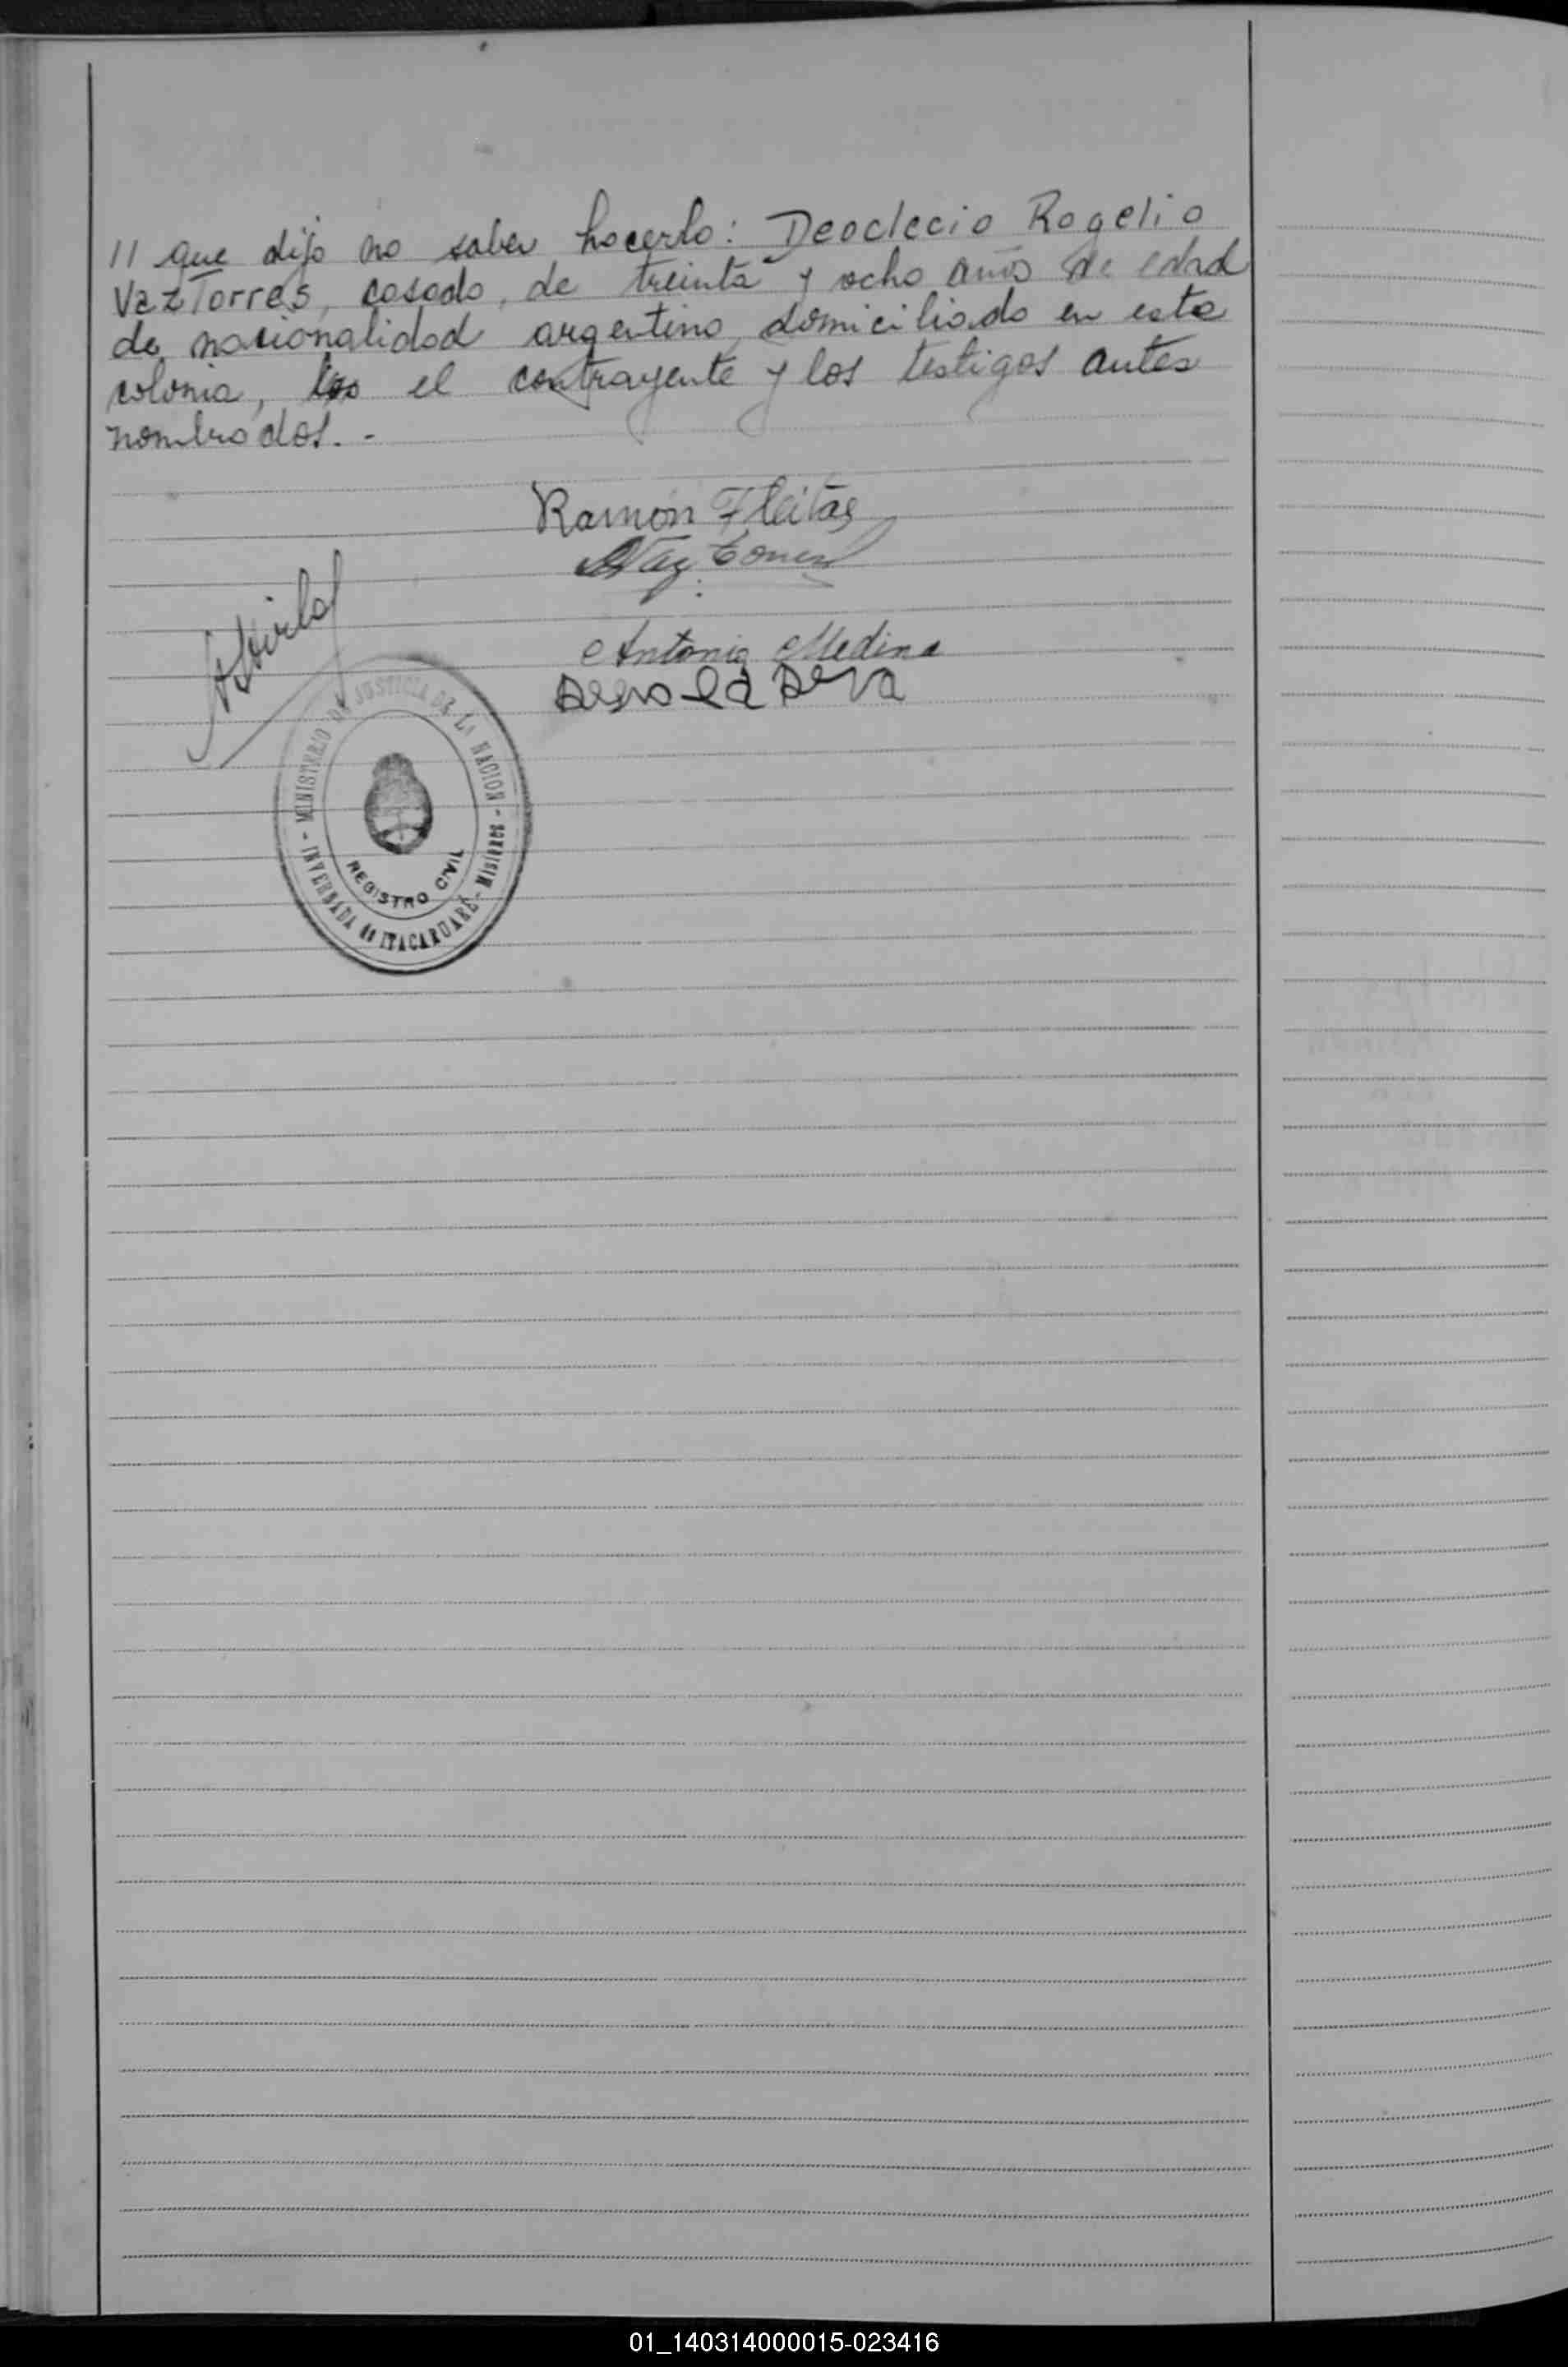 // que dijo no saber hacerlo: Deoclecio Rogelio
Vaz Torres, casado, de treinta y ocho años de edad
de nacionalidad argentino, domiciliado en esta
colonia, el contrayente y los testigos antes
nombrados. -
Ramón Fleitas
Vaz Torres
Antonio Medina
- MINISTERIO DE JUSTICIA DE LA NACION -
REGISTRO CIVIL
INVERNADA de ITACARUARÉ - Misiones
01_140314000015-023416